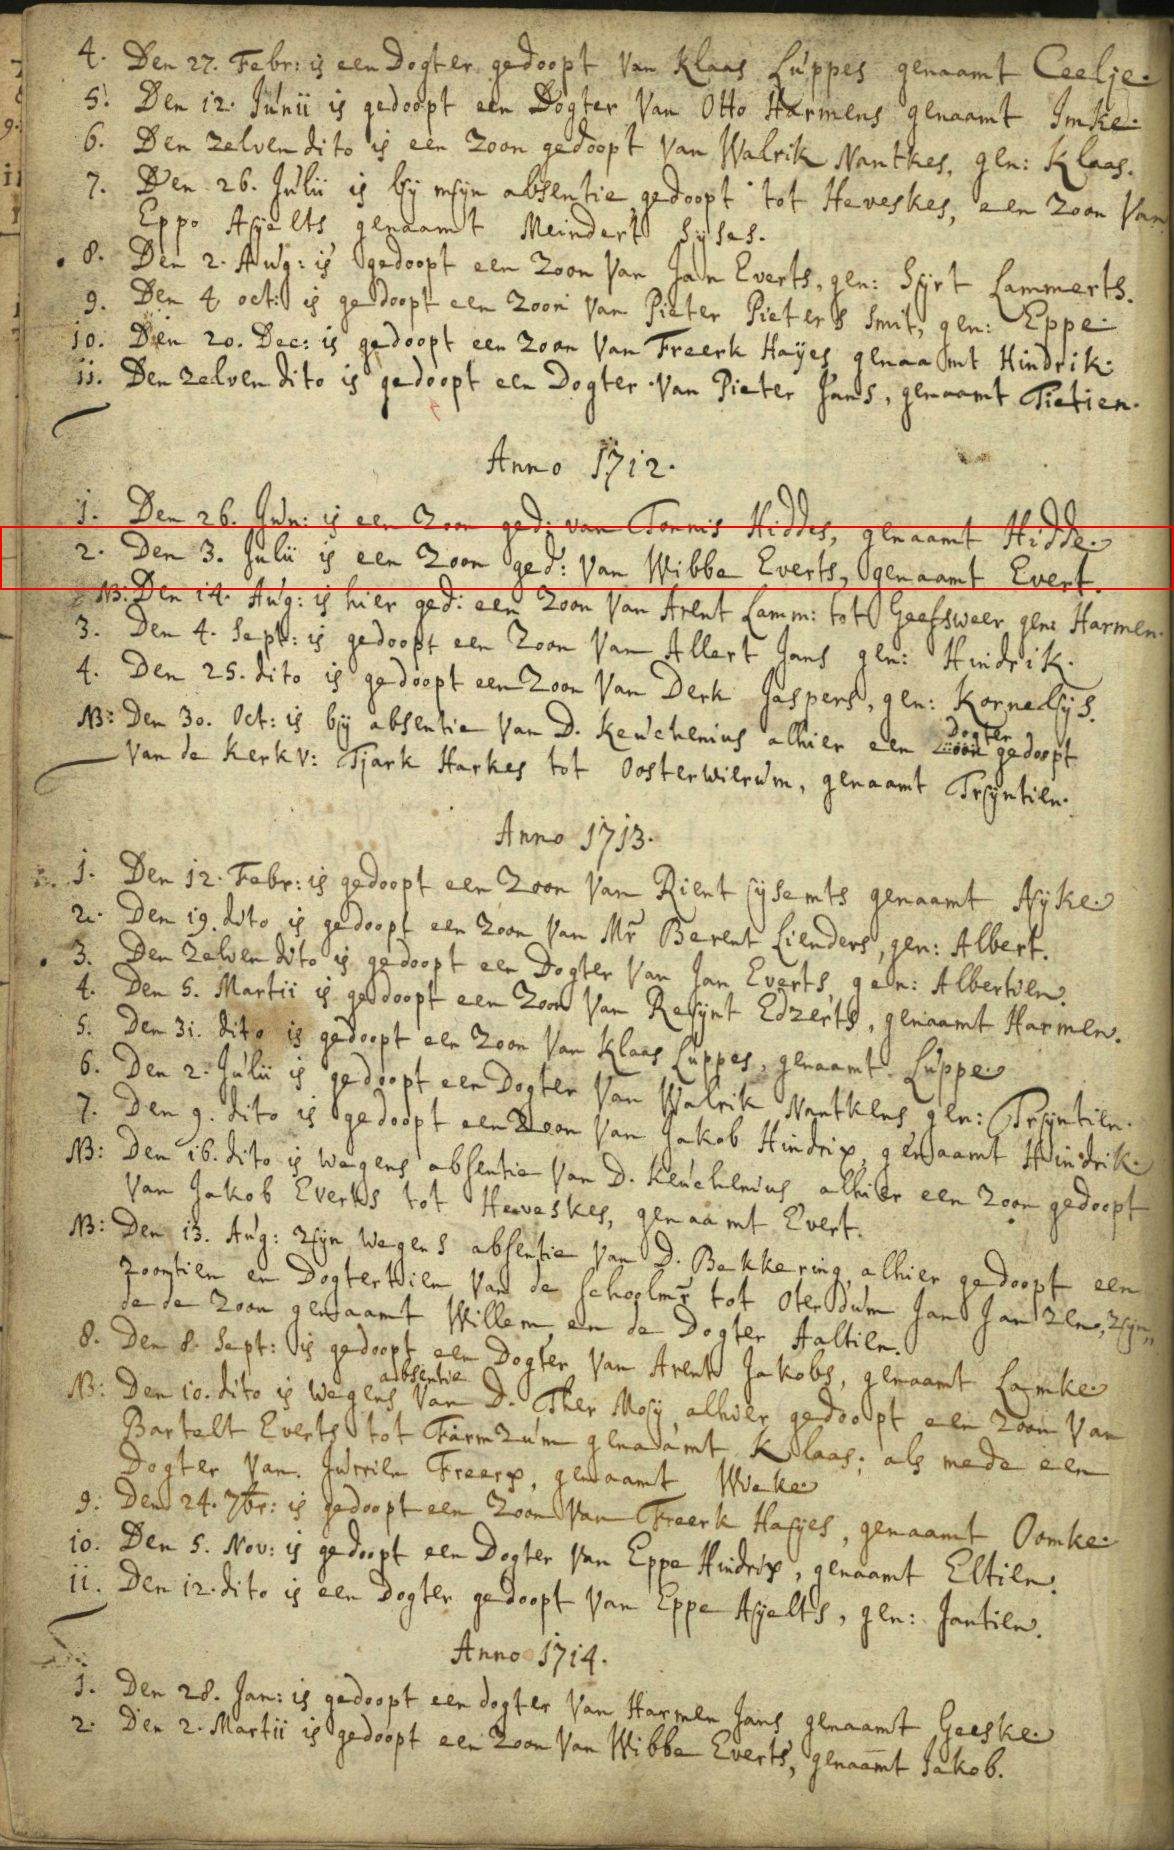 4. Den 27. Febr: is een Dogter gedoopt Van Klaas Luppes genaamt Ceelje.
5. Den 12. Junii is gedoopt een Dogter Van Otto Harmens genaamt Imke.
6. Den zelven dito is een Zoon gedoopt Van Walrik Nantkes, gen: Klaas.
7. Den 26. Julii is by myn absentie gedoopt tot Heveskes, een Zoon Van
Eppo Ayelts genaamt Meindert Syses.
8. Den 2. Aug: is gedoopt een Zoon Van Jan Everts, gen: Syrt Lammerts.
9. Den 4 oct: is gedoopt een Zoon Van Pieter Pieters Smit, gen: Eppe.
10. Den 20. Dec: is gedoopt een Zoon Van Freerk Hayes genaamt Hindrik.
11. Den zelven dito is gedoopt een Dogter Van Pieter Jans, genaamt Tietien.
Anno 1712.
1. Den 26. Jun: is een Zoon ged: van Tonnis Hiddes, genaamt Hidde.
2. Den 3. Julii is een Zoon ged: Van Wibbe Everts, genaamt Evert.
NB: Den 14. Aug: is hier ged: een Zoon Van Arent Lamm: tot Geefsweer gen: Harmen.
3. Den 4. Sept: is gedoopt een Zoon Van Allert Jans gen: Hindrik.
4. Den 25. dito is gedoopt een Zoon Van Derk Jaspers, gen: Kornelys.
NB: Den 30. Oct: is by absentie Van D. Keuchenius alhier een Dogter gedoopt
Van de Kerkv: Tjark Harkes tot Oosterwierum, genaamt Tryntien.
Anno 1713.
1. Den 12. Febr: is gedoopt een Zoon Van Rient Sysemts genaamt Ayke
2. Den 19. dito is gedoopt een Zoon Van Mr Berent Lienders, gen: Albert.
3. Den Zelven dito is gedoopt een Dogter Van Jan Everts gen: Albertien.
4. Den 5. Martii is gedoopt een Zoon Van Reynt Edzerts, genaamt Harmen.
5. Den 31. dito is gedoopt een Zoon Van Klaas Luppes, genaamt Luppe
6. Den 2. Julii is gedoopt een Dogter Van Walrik Nantkens gen: Tryntien.
7. Den 9. dito is gedoopt een Zoon Van Jakob Hindrix, genaamt Hindrik.
NB: Den 16. dito is wegens absentie Van D. Keuchenius alhier een Zoon gedoopt
Van Jakob Everts tot Heveskes, genaamt Evert.
NB: Den 13. Aug: zyn wegens absentie Van D. Bekkering, alhier gedoopt een
Zoontien en Dogtertien Van de schoolmr tot Oterdum Jan Janzen, zyn,,
de de Zoon genaamt Willem, en de Dogter Aaltien.
8. Den 8. Sept: is gedoopt een Dogter Van Arent Jakobs, genaamt Lamke
NB: Den 10. dito is wegens absentie Van D. Ther Moy, alhier gedoopt een Zoon Van
Bartelt Everts tot Farmzum genaamt Klaas; als mede een
Dogter Van Jurrien Freerx, genaamt Wieke
9. Den 24. 7br: is gedoopt een Zoon Van Freerk Hayes, genaamt Oomke.
10. Den 5. Nov: is gedoopt een Dogter Van Eppe Hindrix, genaamt Eltien.
11. Den 12. dito is een Dogter gedoopt Van Eppe Ayelts, gen: Jantien.
Anno 1714.
1. Den 28. Jan: is gedoopt een dogter Van Harmen Jans genaamt Geeske
2. Den 2. Martii is gedoopt een Zoon Van Wibbe Everts, genaamt Jakob.